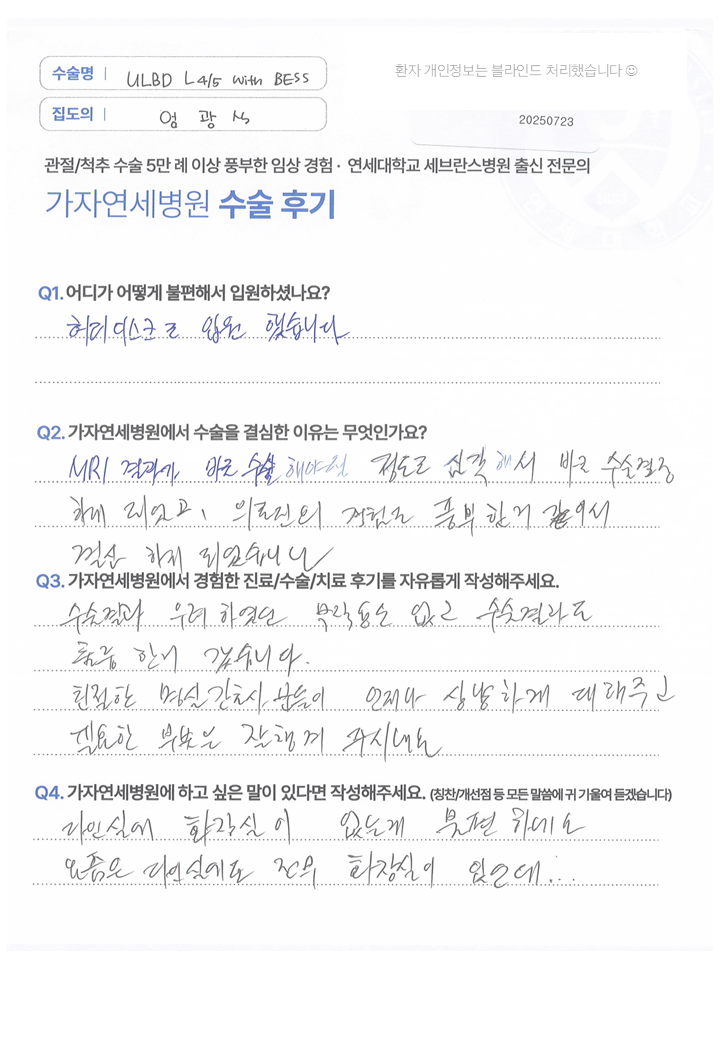 수술명 | ULBD L4/5 with BESS
환자 개인정보는 블라인드 처리했습니다 ☺
집도의 | 엄 광 식
20250723
관절/척추 수술 5만 례 이상 풍부한 임상 경험 · 연세대학교 세브란스병원 출신 전문의
가자연세병원 수술 후기
Q1. 어디가 어떻게 불편해서 입원하셨나요?
허리디스크로 입원 했습니다
Q2. 가자연세병원에서 수술을 결심한 이유는 무엇인가요?
MRI 결과가 바로 수술 해야될 정도로 심각해서 바로 수술결정
하게 되었고, 의료진의 경험도 풍부한거 같아서
결심 하게 되었습니다
Q3. 가자연세병원에서 경험한 진료/수술/치료 후기를 자유롭게 작성해주세요.
수술결과 우려 하였던 부작용은 없고 수술결과도
훌륭 한거 같습니다.
친절한 병실간호사분들이 언제나 상냥하게 대해주고
필요한 부분은 잘챙겨 주시네요
Q4. 가자연세병원에 하고 싶은 말이 있다면 작성해주세요. (칭찬/개선점 등 모든 말씀에 귀 기울여 듣겠습니다)
다인실에 화장실이 없는게 불편 하네요
요즘은 다인실에도 전부 화장실이 있는데...